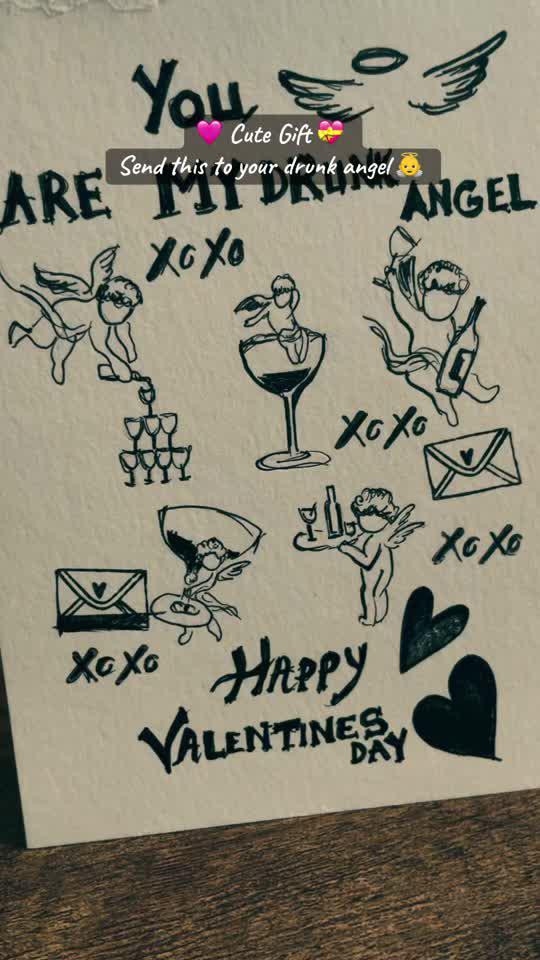 You
💗 Cute Gift 💝
Send this to your drunk angel 👼
ARE MY DRUNK ANGEL
XOXO
XOXO
XOXO
XOXO
HAPPY
VALENTINES
DAY